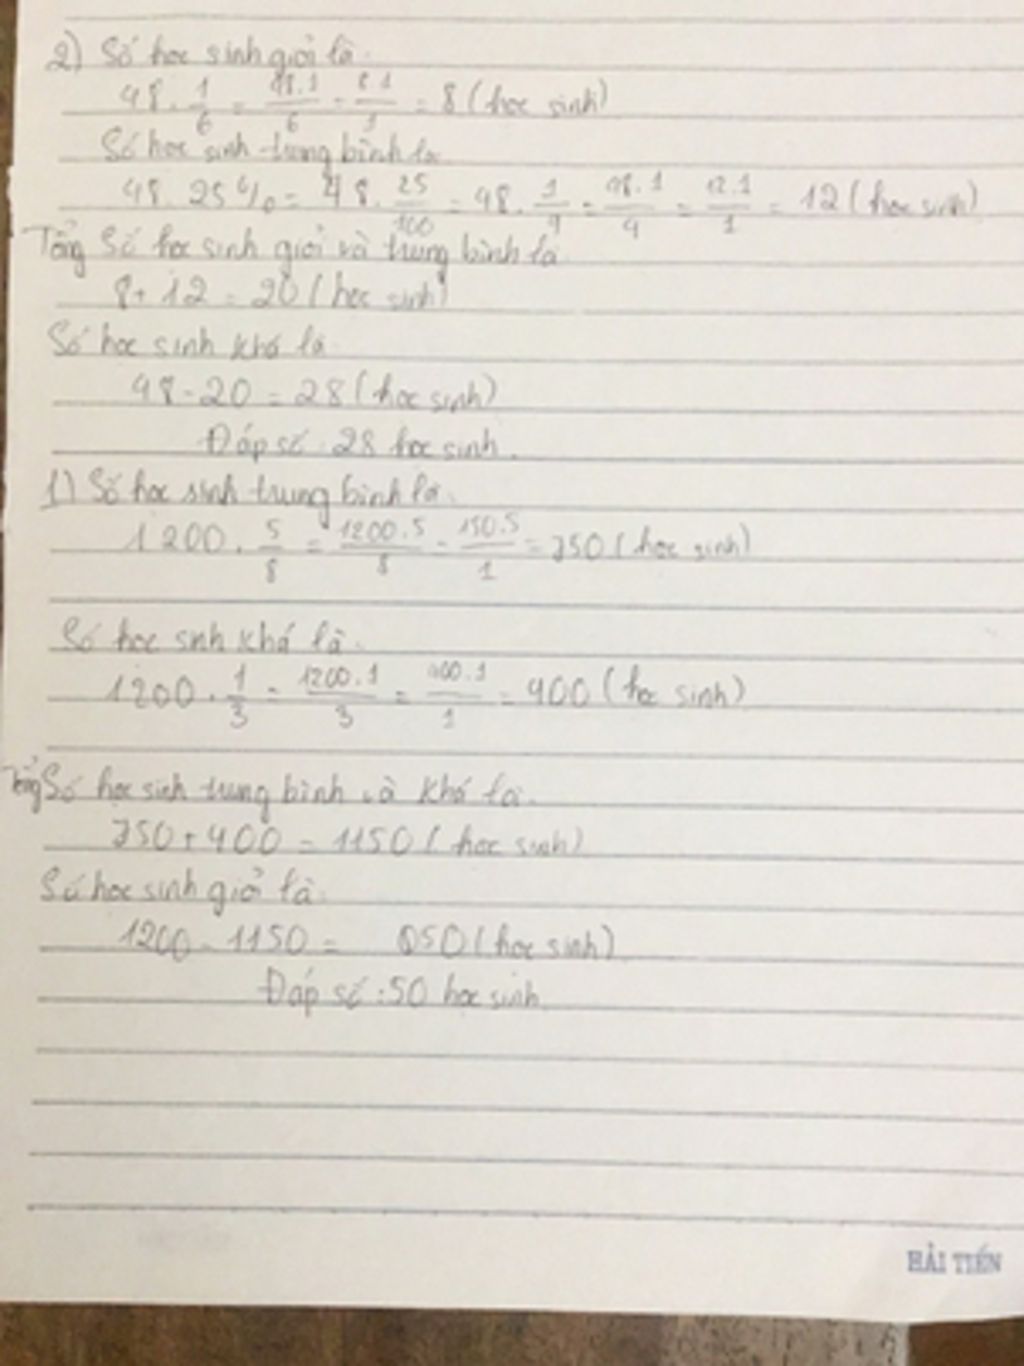 2) Số học sinh giỏi là.
48 . 1/6 = 48.1/6 = 8.1/1 = 8 (học sinh)
Số học sinh trung bình là
48 . 25% = 48 . 25/100 = 48 . 1/4 = 48.1/4 = 12.1/1 = 12 (học sinh)
Tổng Số học sinh giỏi và trung bình là
8 + 12 = 20 (học sinh)
Số học sinh khá là
48 - 20 = 28 (học sinh)
Đáp số : 28 học sinh.
1) Số học sinh trung bình là.
1200 . 5/8 = 1200.5/8 = 150.5/1 = 750 (học sinh)
Số học sinh khá là.
1200 . 1/3 = 1200.1/3 = 400.1/1 = 400 (học sinh)
Tổng Số học sinh trung bình và khá là.
750 + 400 = 1150 (học sinh)
Số học sinh giỏi là
1200 - 1150 = 050 (học sinh)
Đáp số : 50 học sinh
HẢI TIẾN